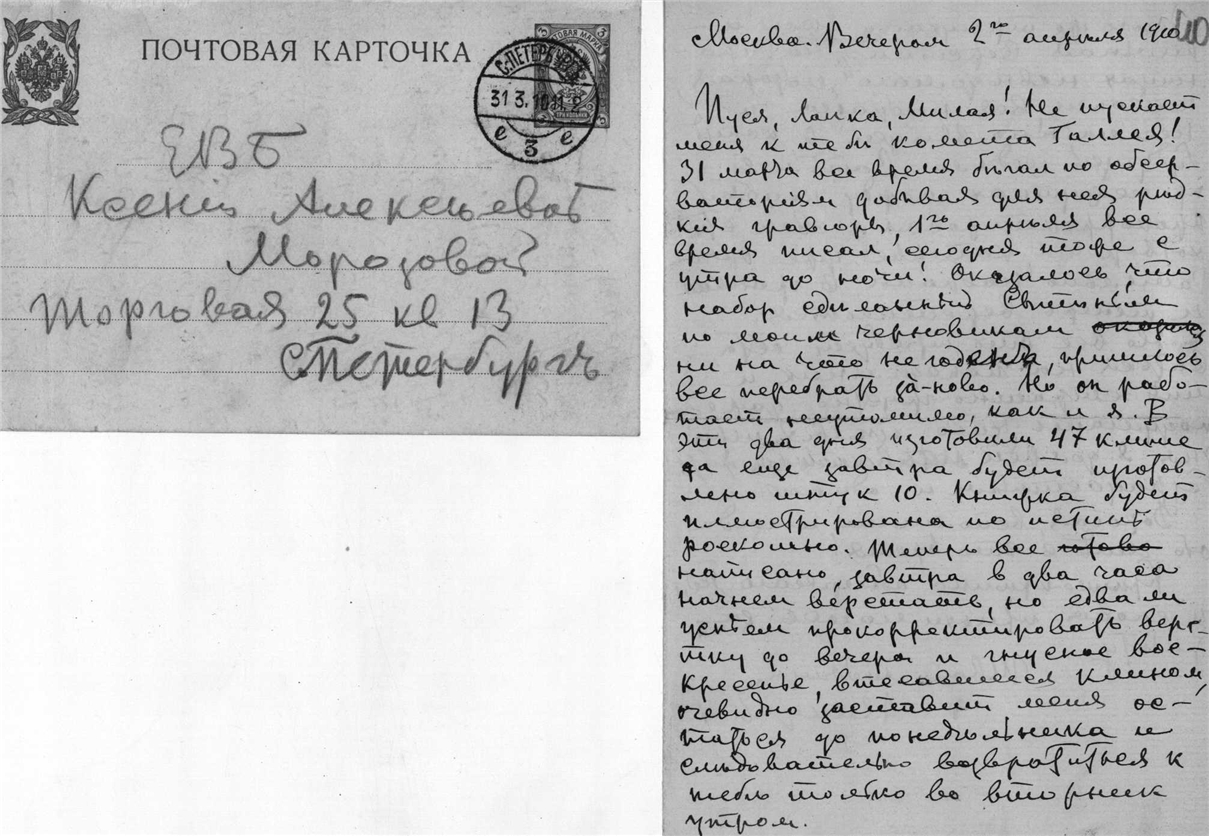 ПОЧТОВАЯ КАРТОЧКА
С.ПЕТЕРБУРГЪ
31 3.10
е 3 е
ЕВБ
Ксеніи Алексѣевнѣ
Морозовой
Торговая 25 кв 13
С.Петербургъ
Москва. Вечером 2го апрѣля 1910
Пуся, Лапка, Милая! Не пускает
меня к тебѣ комета Галлея!
31 марта все время бѣгал по обсер-
ваториям добывая для нея рѣд-
кія гравюры, 1го апрѣля все
время писал, сегодня тоже с
утра до ночи! Оказалось, что
набор сдѣланный Сытиным
по моим черновикам
ни на что не годен, пришлось
все перебрать за-ново. Но он рабо-
тает неутомимо, как и я. В
эти два дня изготовили 47 клише
да еще завтра будет изготов-
лено штук 10. Книжка будет
иллюстрирована по истинѣ
роскошно. Теперь все готово
написано, завтра в два часа
начнем верстать, но едва ли
успѣем прокорректировать верс-
тку до вечера и гнусное вос-
кресенье, втесавшееся клином,
очевидно заставит меня ос-
таться до понедѣльника и
слѣдовательно возвратиться к
тебѣ только во вторник
утром.